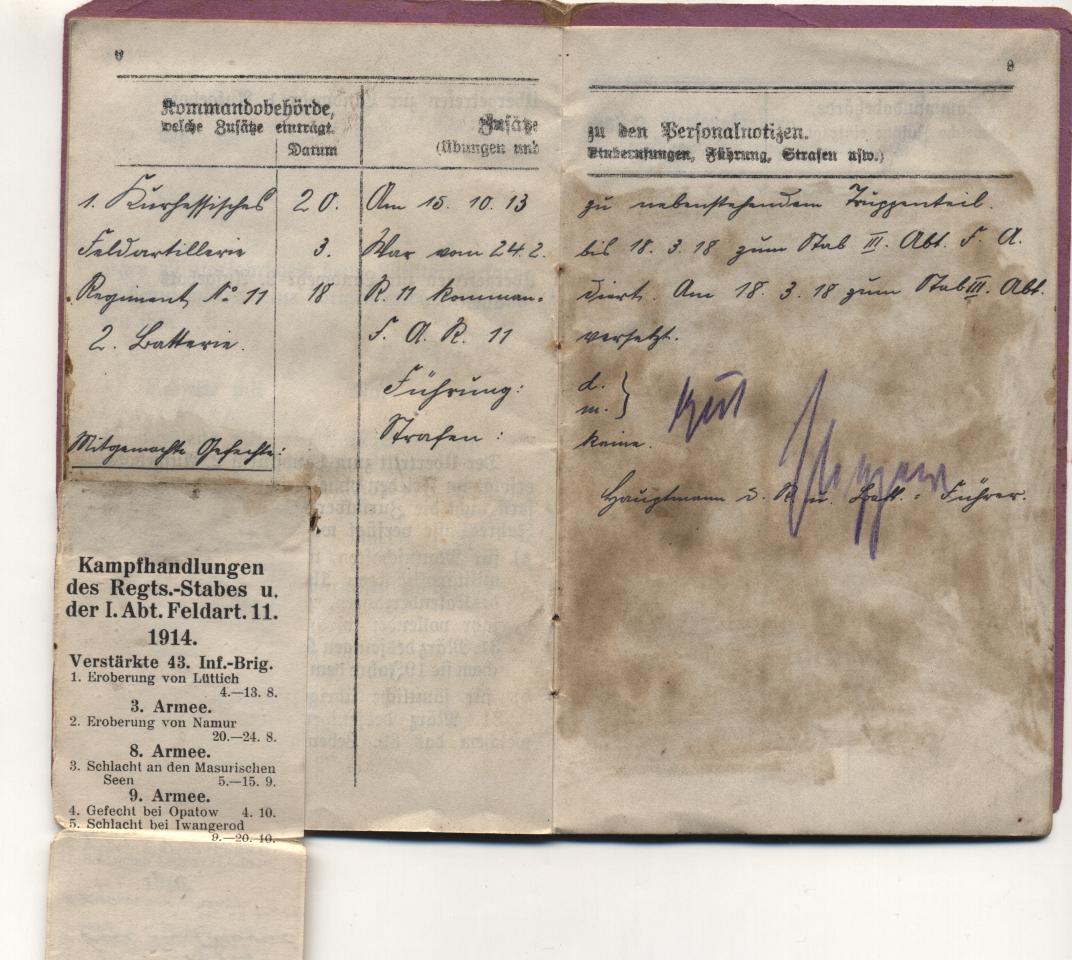 Kommandobehörde,
welche Zusätze einträgt.
Datum
Zusätze
(Übungen und
1. Kurhessisches
20.
Am 15. 10. 13
Feldartillerie
3.
War vom 24.2.
Regiment No 11
18
R. 11 komman-
2. Batterie.
F. A. R. 11
Führung:
Strafen:
Mitgemachte Gefechte:
Kampfhandlungen
des Regts.-Stabes u.
der I. Abt. Feldart. 11.
1914.
Verstärkte 43. Inf.-Brig.
1. Eroberung von Lüttich
4.—13. 8.
3. Armee.
2. Eroberung von Namur
20.—24. 8.
8. Armee.
3. Schlacht an den Masurischen
Seen 5.—15. 9.
9. Armee.
4. Gefecht bei Opatow 4. 10.
5. Schlacht bei Iwangerod
9.—20. 10.
9
zu den Personalnotizen.
Einberufungen, Führung, Strafen usw.)
zu nebenstehendem Truppenteil.
bis 18. 3. 18 zum Stab III. Abt. F. A.
diert. Am 18. 3. 18 zum Stab III. Abt.
versetzt.
d.
m. } gut
keine.
Hauptmann d. R. u. Battr.-Führer.